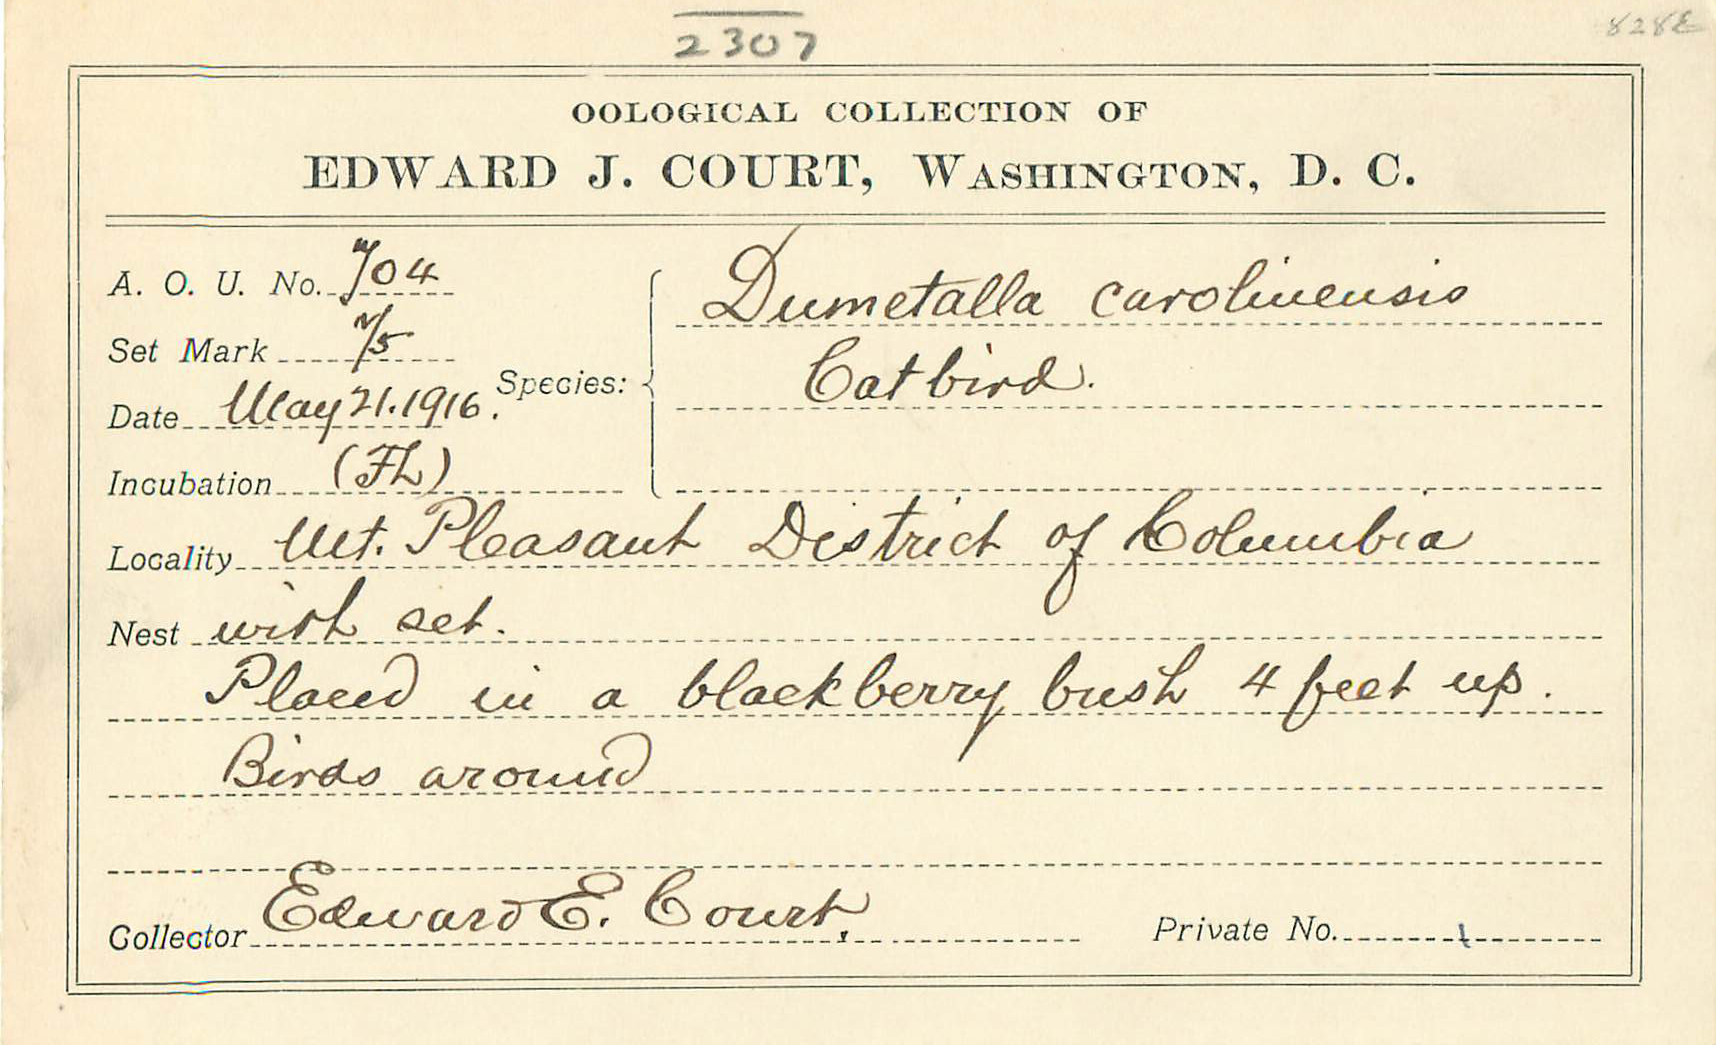 2307
828E
OOLOGICAL COLLECTION OF
EDWARD J. COURT, WASHINGTON, D. C.
A. O. U. No. 704
Set Mark 1/5
Date May 21. 1916.
Incubation (Fh)
Species: Dumetalla carolinensis
Catbird.
Locality Mt. Pleasant District of Columbia
Nest with set.
Placed in a blackberry bush 4 feet up.
Birds around
Collector Edward E. Court.
Private No. 1